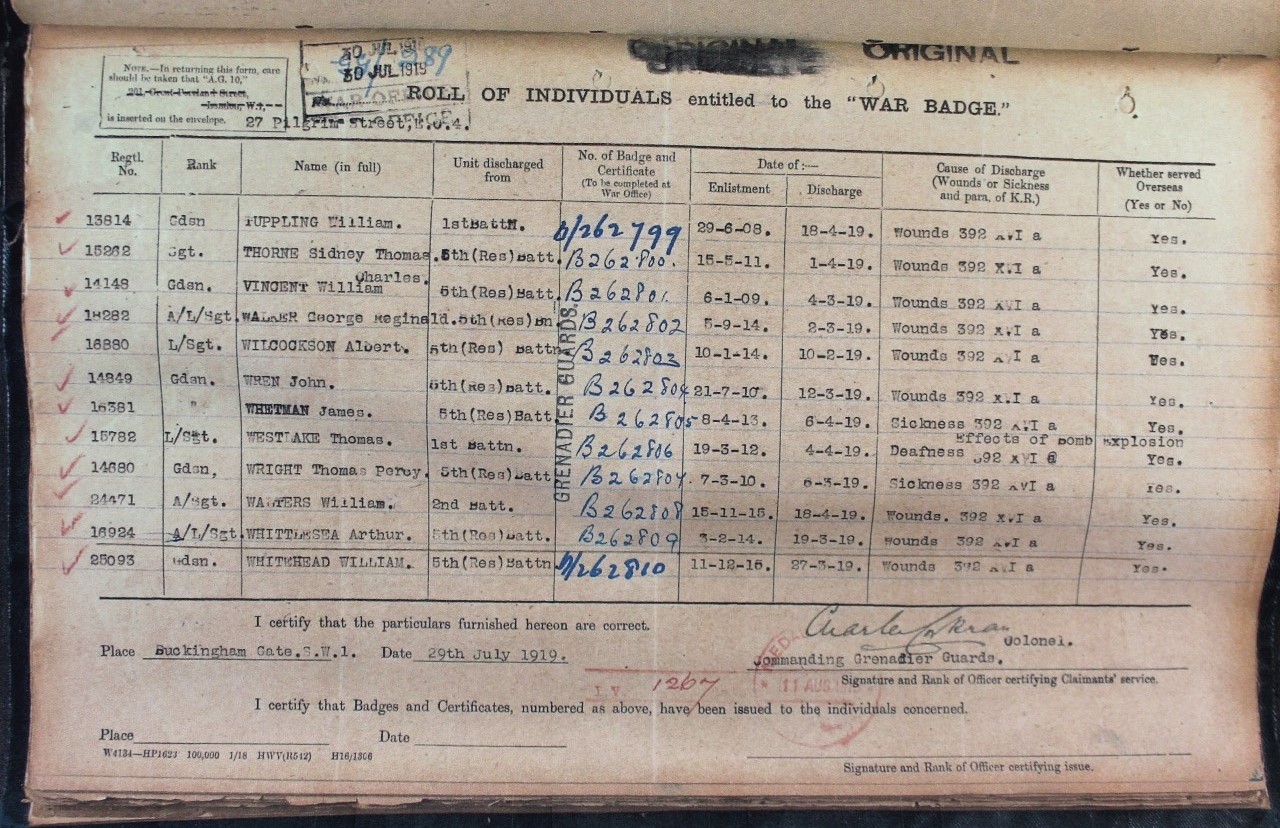 ORIGINAL ORIGINAL
NOTE.—In returning this form, care
should be taken that "A.G. 10,"
London, W.1,
is inserted on the envelope.
27 Pilgrim Street, E.C.4.
30 JUL 1919
30 JUL 1919
WAR OFFICE
ROLL OF INDIVIDUALS entitled to the "WAR BADGE."
Regtl. No. Rank Name (in full) Unit discharged from No. of Badge and Certificate (To be completed at War Office) Date of:— Enlistment Discharge Cause of Discharge (Wounds or Sickness and para. of K.R.) Whether served Overseas (Yes or No)
13814 Gdsn TUPPLING William. 1stBattN. B/262799 29-6-08. 18-4-19. Wounds 392 XVI a Yes.
15262 Sgt. THORNE Sidney Thomas. 5th(Res)Batt. B262800. 15-5-11. 1-4-19. Wounds 392 XVI a Yes.
14148 Gdsn. VINCENT William Charles. 5th(Res)Batt. B262801. 6-1-09. 4-3-19. Wounds 392 XVI a Yes.
18282 A/L/Sgt. WALKER George Reginald. 5th(Res)Bn B262802 5-9-14. 2-3-19. Wounds 392 XVI a Yes.
16880 L/Sgt. WILCOCKSON Albert. 5th(Res) Battn B262803 10-1-14. 10-2-19. Wounds 392 XVI a Yes.
14849 Gdsn. WREN John. 5th(Res)Batt. B262804 21-7-10. 12-3-19. Wounds 392 XVI a Yes.
16381 " WHETMAN James. 5th(Res)Batt. B262805 8-4-13. 6-4-19. Sickness 392 XVI a Yes.
15782 L/Sgt. WESTLAKE Thomas. 1st Battn. B262806 19-3-12. 4-4-19. Deafness Effects of Bomb Explosion 392 XVI a Yes.
14680 Gdsn, WRIGHT Thomas Percy. 5th(Res)Batt. B262807. 7-3-10. 6-3-19. Sickness 392 XVI a Yes.
24471 A/Sgt. WALTERS William. 2nd Batt. B262808 15-11-15. 18-4-19. Wounds. 392 XVI a Yes.
16924 A/L/Sgt. WHITTLESEA Arthur. 5th(Res)Batt. B262809 3-2-14. 19-3-19. Wounds 392 XVI a Yes.
25093 Gdsn. WHITEHEAD WILLIAM. 5th(Res)Battn B/262810 11-12-15. 27-3-19. Wounds 392 XVI a Yes.
GRENADIER GUARDS.
I certify that the particulars furnished hereon are correct.
Colonel.
Place Buckingham Gate.S.W.1. Date 29th July 1919. Commanding Grenadier Guards.
1267
11 AUG
Signature and Rank of Officer certifying Claimants' service.
I certify that Badges and Certificates, numbered as above, have been issued to the individuals concerned.
Place Date
W4134—HP1623 100,000 1/18 HWV(R542) H16/1306
Signature and Rank of Officer certifying issue.